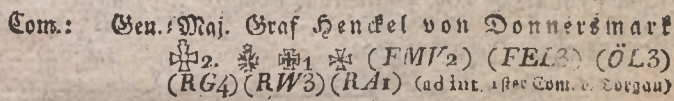 Com.: Gen.-Maj. Graf Henckel von Donnersmark
2. 1 (FMV2) (FEL3) (ÖL3)
(RG4) (RW3) (RA1) (ad int. 1ster Com. v. Torgau)